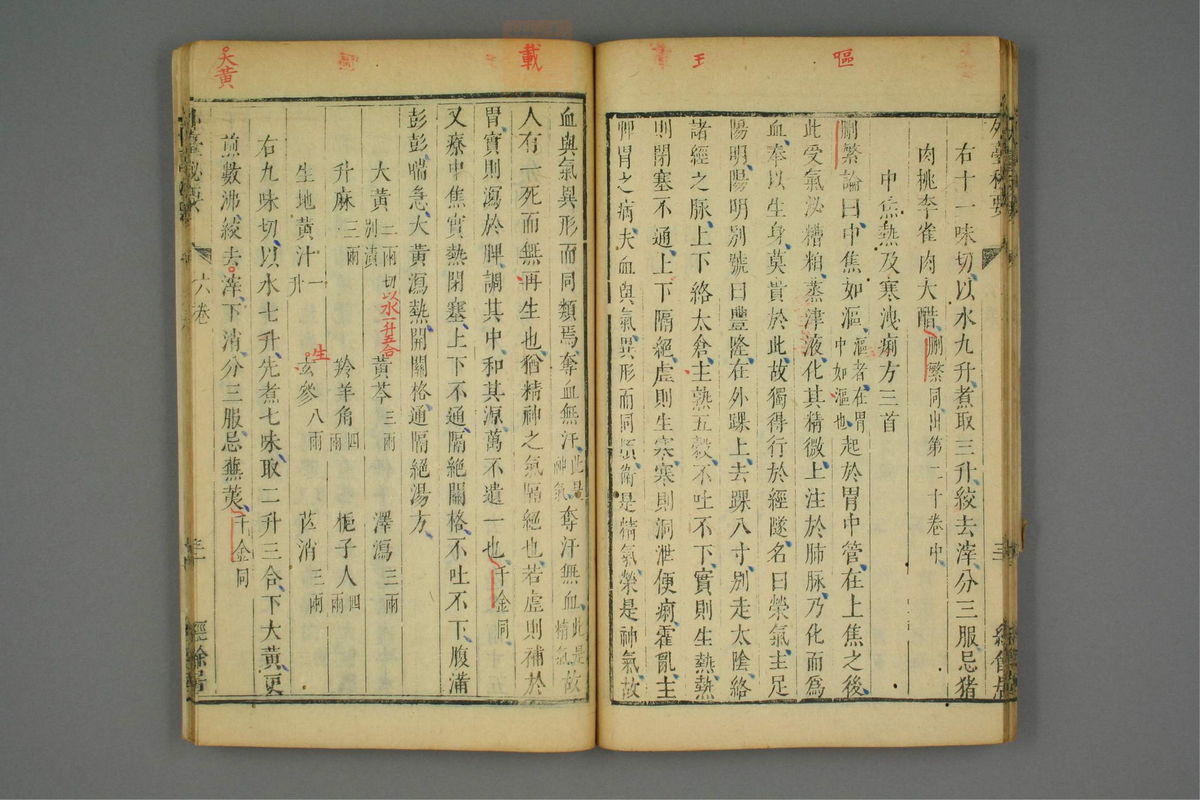 嘔
王
右十一味切以水九升煮取三升絞去滓分三服忌猪
肉桃李雀肉大醋刪繁同出第二十卷中
中焦熱及寒洩痢方三首
刪繁論曰中焦如漚漚者在胃中如漚也起於胃中管在上焦之後
此受氣泌糟粕蒸津液化其精微上注於肺脉乃化而爲
血奉以生身莫貴於此故獨得行於經隧名曰榮氣主足
陽明陽明別號曰豐隆在外踝上去踝八寸別走太陰絡
諸經之脉上下絡太倉主熟五穀不吐不下實則生熱熱
則閉塞不通上下隔絕虛則生寒寒則洞泄便痢霍亂主
脾胃之病夫血與氣異形而同類衛是精氣榮是神氣故
載
大黃
血與氣異形而同類焉奪血無汗此是神氣奪汗無血此是精氣故
人有一死而無再生也猶精神之氣隔絕也若虛則補於
胃實則瀉於脾調其中和其源萬不遺一也千金同
又療中焦實熱閉塞上下不通隔絕關格不吐不下腹滿
彭彭喘急大黃瀉熱開關格通隔絕湯方
大黃二兩切別漬以水一升五合 黃芩三兩 澤瀉三兩
升麻三兩 羚羊角四兩 梔子人四兩
生地黃汁一升 生玄參八兩 芒消三兩
右九味切以水七升先煮七味取二升三合下大黃更
煎數沸絞去滓下消分三服忌蕪荑千金同
外臺秘要
六卷
經餘居